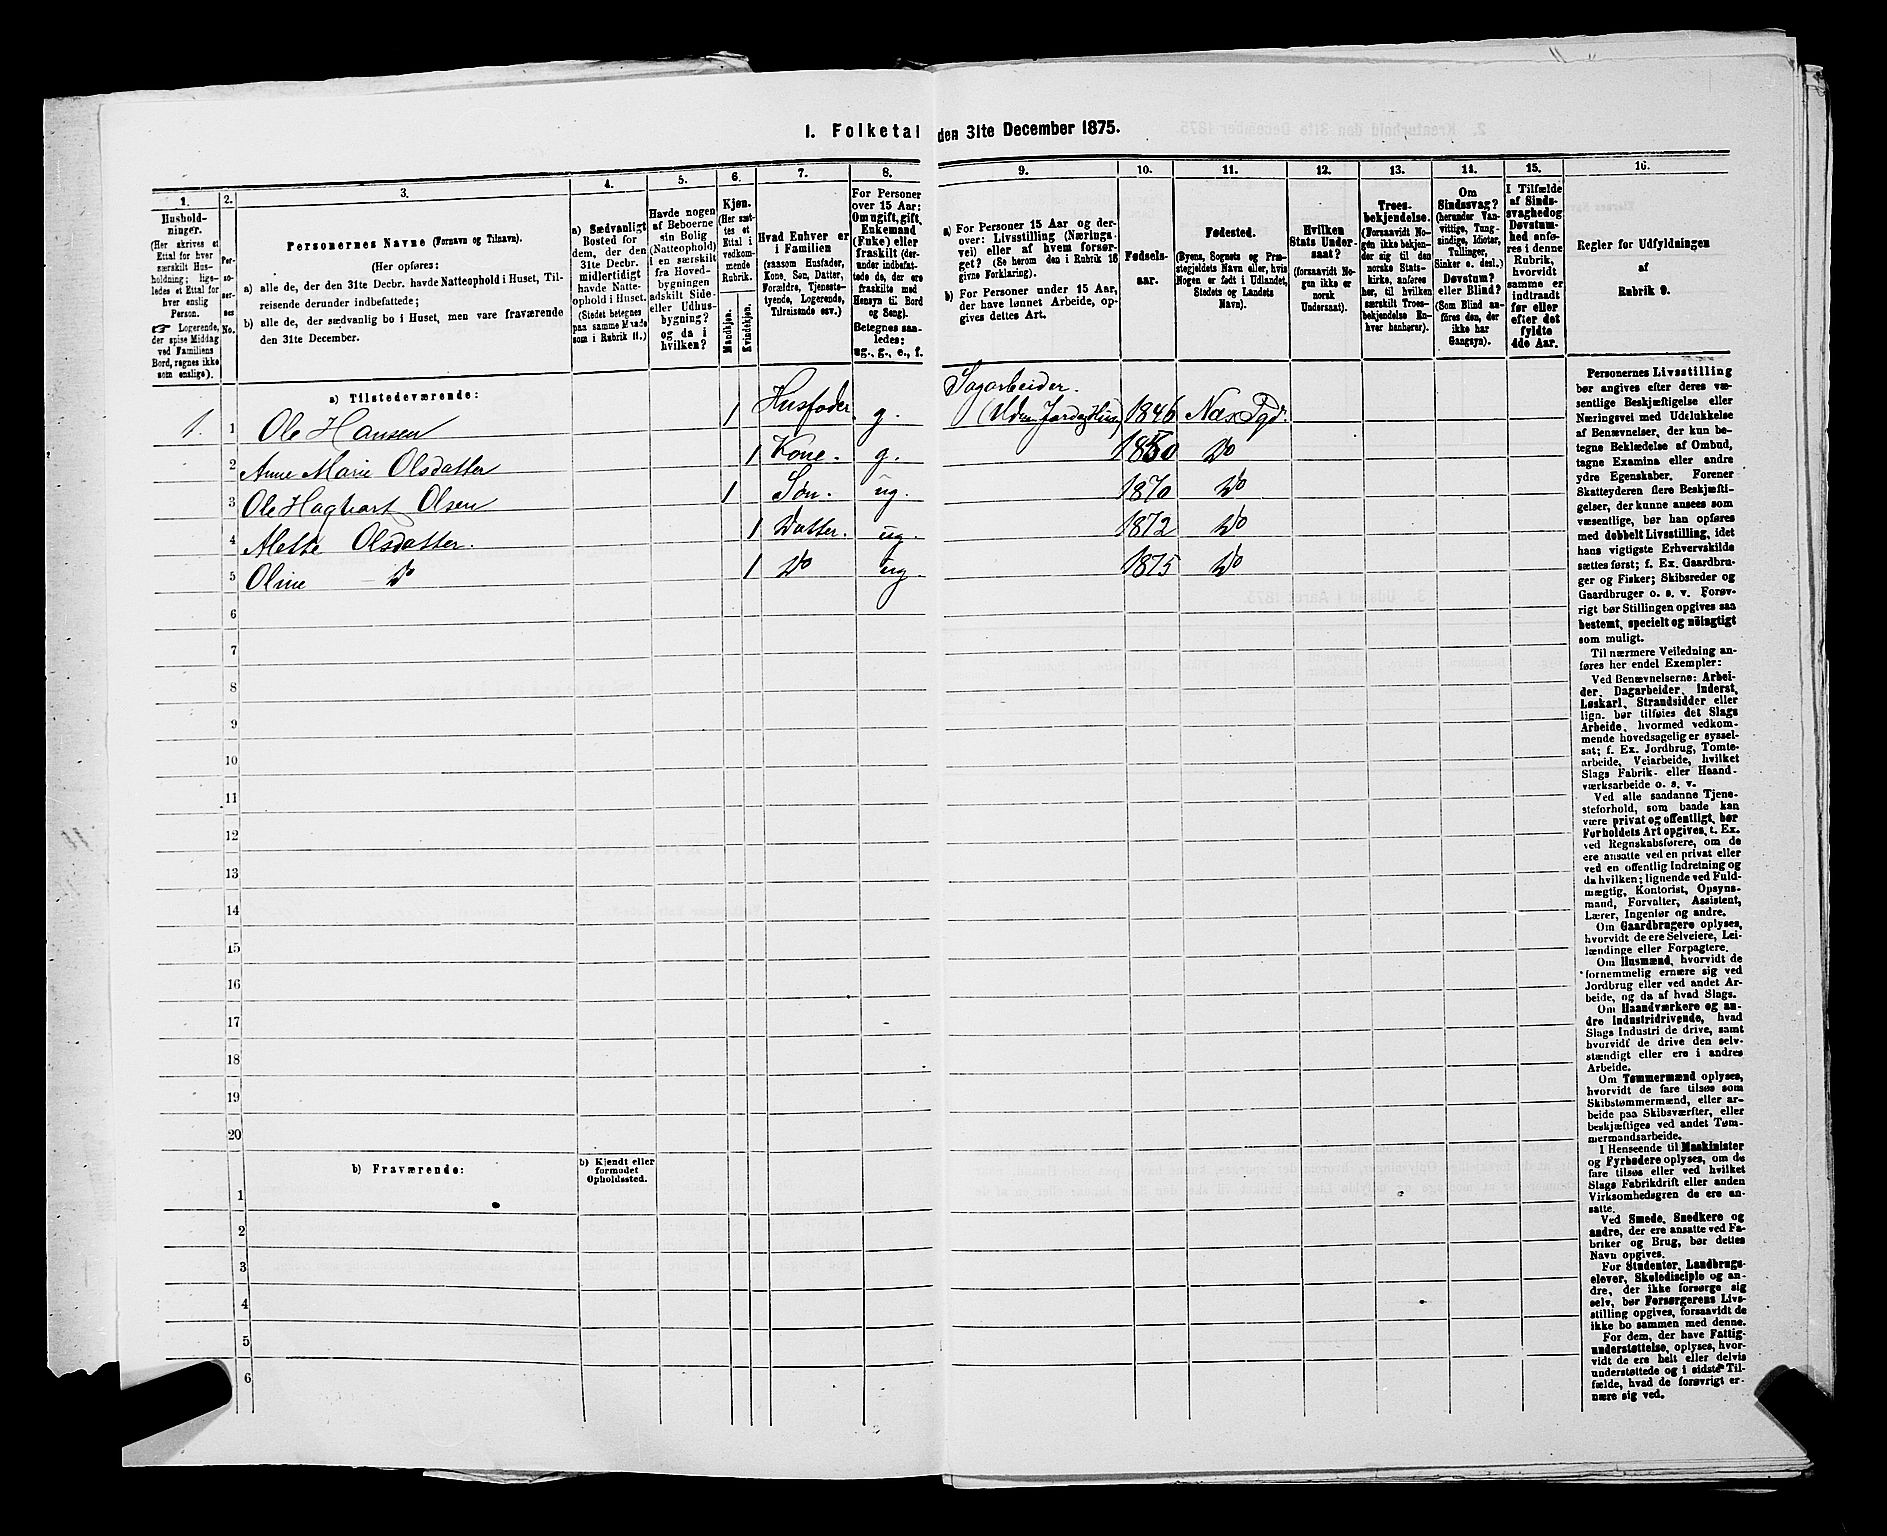 I. Folketal den 31te December 1875.
1.
2.
3.
4.
5.
6.
7.
8.
9.
10.
11.
12.
13.
14.
15.
16.
Hushold-
ninger.
(Her skrives et
Ettal for hver
særskilt Hus-
holdning; lige-
ledes et Ettal for
hver enslig
Person.
☞ Logerende,
der spise Middag
ved Familiens
Bord, regnes ikke
som enslige).
Per-
so-
ner-
nes
No.
Personernes Navne (Fornavn og Tilnavn).
(Her opføres:
a) alle de, der den 31te Decbr. havde Natteophold i Huset, Til-
reisende derunder indbefattede;
b) alle de, der sædvanlig bo i Huset, men vare fraværende
den 31te December.
a) Sædvanligt
Bosted for
dem, der den
31te Decbr.
midlertidigt
havde Natte-
ophold i Huset.
(Stedet betegnes
paa samme Maade
som i Rubrik 11.)
Havde nogen
af Beboerne
sin Bolig
(Natteophold)
i en særskilt
fra Hoved-
bygningen
adskilt Side-
eller Udhus-
bygning?
og da i
hvilken?
Kjøn.
(Her sæt-
tes et
Ettal i
vedkom-
mende
Rubrik.
Mandkjøn.
Kvindekjøn.
Hvad Enhver er
i Familien
(saasom Husfader,
Kone, Søn, Datter,
Forældre, Tjeneste-
tyende, Logerende,
Tilreisende osv.)
For Personer
over 15 Aar:
Om ugift, gift,
Enkemand
(Enke) eller
fraskilt (der-
under indbefat-
tede de, der ere
fraskilte med
Hensyn til Bord
og Seng).
Betegnes saa-
ledes:
ug., g., e., f.
a) For Personer 15 Aar og der-
over: Livsstilling (Nærings-
vei) eller af hvem forsør-
get? (Se herom den i Rubrik 16
givne Forklaring).
b) For Personer under 15 Aar,
der have lønnet Arbeide, op-
gives dettes Art.
Fødsels-
aar.
Fødested.
(Byens, Sognets og Præ-
stegjeldets Navn eller, hvis
Nogen er født i Udlandet,
Stedets og Landets
Navn).
Hvilken
Stats Under-
saat?
(forsaavidt No-
gen ikke er
norsk
Undersaat).
Troes-
bekjendelse.
(Forsaavidt No-
gen ikke bekjen-
der sig til den
norske Stats-
kirke, anføres
her, til hvilken
særskilt Troes-
bekjendelse En-
hver henhører).
Om
Sindssvag?
(herunder Van-
vittige, Tung-
sindige, Idioter,
Tullinger,
Sinker o. desl.)
Døvstum?
eller Blind?
(Som Blind an-
føres den, der
ikke har
Gangsyn).
I Tilfælde
af Sinds-
svaghed og
Døvstum-
hed anfø-
res i denne
Rubrik,
hvorvidt
samme er
indtraadt
før eller
efter det
fyldte
4de Aar.
Regler for Udfyldningen
af
Rubrik 9.
a) Tilstedeværende:
1. 1 Ole Hansen 1 Husfader g. Sagarbeider. (Uden Jord og Huus) 1846 Næs Pgd.
2 Anne Marie Olsdatter 1 Kone. g. 1850 Do
3 Ole Hagbart Olsen 1 Søn. ug. 1870 Do
4 Mette Olsdatter. 1 Datter. ug. 1872 Do
5 Oline Do 1 Do ug. 1875 Do
6
7
8
9
10
11
12
13
14
15
16
17
18
19
20
b) Fraværende:
b) Kjendt eller
formodet
Opholdssted.
1
2
3
4
5
6
Personernes Livsstilling
bør angives efter deres væ-
sentlige Beskjæftigelse eller
Næringsvei med Udelukkelse
af Benævnelser, der kun be-
tegne Beklædelse af Ombud,
tagne Examina eller andre
ydre Egenskaber. Forener
Skatteyderen flere Beskjæfti-
gelser, der kunne ansees som
væsentlige, bør han opføres
med dobbelt Livsstilling, idet
hans vigtigste Erhvervskilde
sættes først; f. Ex. Gaardbru-
ger og Fisker; Skibsreder og
Gaardbruger o. s. v. Forøv-
rigt bør Stillingen opgives saa
bestemt, specielt og nöiagtigt
som muligt.
Til nærmere Veiledning an-
føres her endel Exempler:
Ved Benævnelserne: Arbei-
der, Dagarbeider, Inderst,
Løskarl, Strandsidder eller
lign. bør tilføies det Slags
Arbeide, hvormed vedkom-
mende hovedsagelig er syssel-
sat; f. Ex. Jordbrug, Tomte-
arbeide, Veiarbeide, hvilket
Slags Fabrik- eller Haand-
værksarbeide o. s. v.
Ved alle saadanne Tjene-
steforhold, som baade kan
være privat og offentligt, bør
Forholdets Art opgives, t. Ex.
ved Regnskabsførere, om de
ere ansatte ved en privat eller
ved en offentlig Indretning og
da hvilken; lignende ved Fuld-
mægtig, Kontorist, Opsyns-
mand, Forvalter, Assistent,
Lærer, Ingeniør og andre.
Om Gaardbrugere oplyses,
hvorvidt de ere Selveiere, Lei-
lændinge eller Forpagtere.
Om Husmænd, hvorvidt de
fornemmelig ernære sig ved
Jordbrug eller ved andet Ar-
beide, og da af hvad Slags.
Om Haandværkere og an-
dre Industridrivende, hvad
Slags Industri de drive, samt
hvorvidt de drive den selv-
stændigt eller ere i andres
Arbeide.
Om Tømmermænd oplyses,
hvorvidt de fare tilsøs som
Skibstømmermænd, eller ar-
beide paa Skibsværfter, eller
beskjæftiges ved andet Tøm-
mermandsarbeide.
I Henseende til Maskinister
og Fyrbødere oplyses, om de
fare tilsøs eller ved hvilket
Slags Fabrikdrift eller anden
Virksomhedsgren de ere an-
satte.
Ved Smede, Snedkere og
andre, der ere ansatte ved Fa-
briker og Brug, bør dettes
Navn opgives.
For Studenter, Landbrugs-
elever, Skoledisciple og an-
dre, der ikke forsørge sig
selv, bør Forsørgerens Livs-
stilling opgives, forsaavidt de
ikke bo sammen med denne.
For dem, der have Fattig-
understøttelse, oplyses, hvor-
vidt de ere helt eller delvis
understøttede og i sidste Til-
fælde, hvad de forøvrigt er-
nære sig ved.